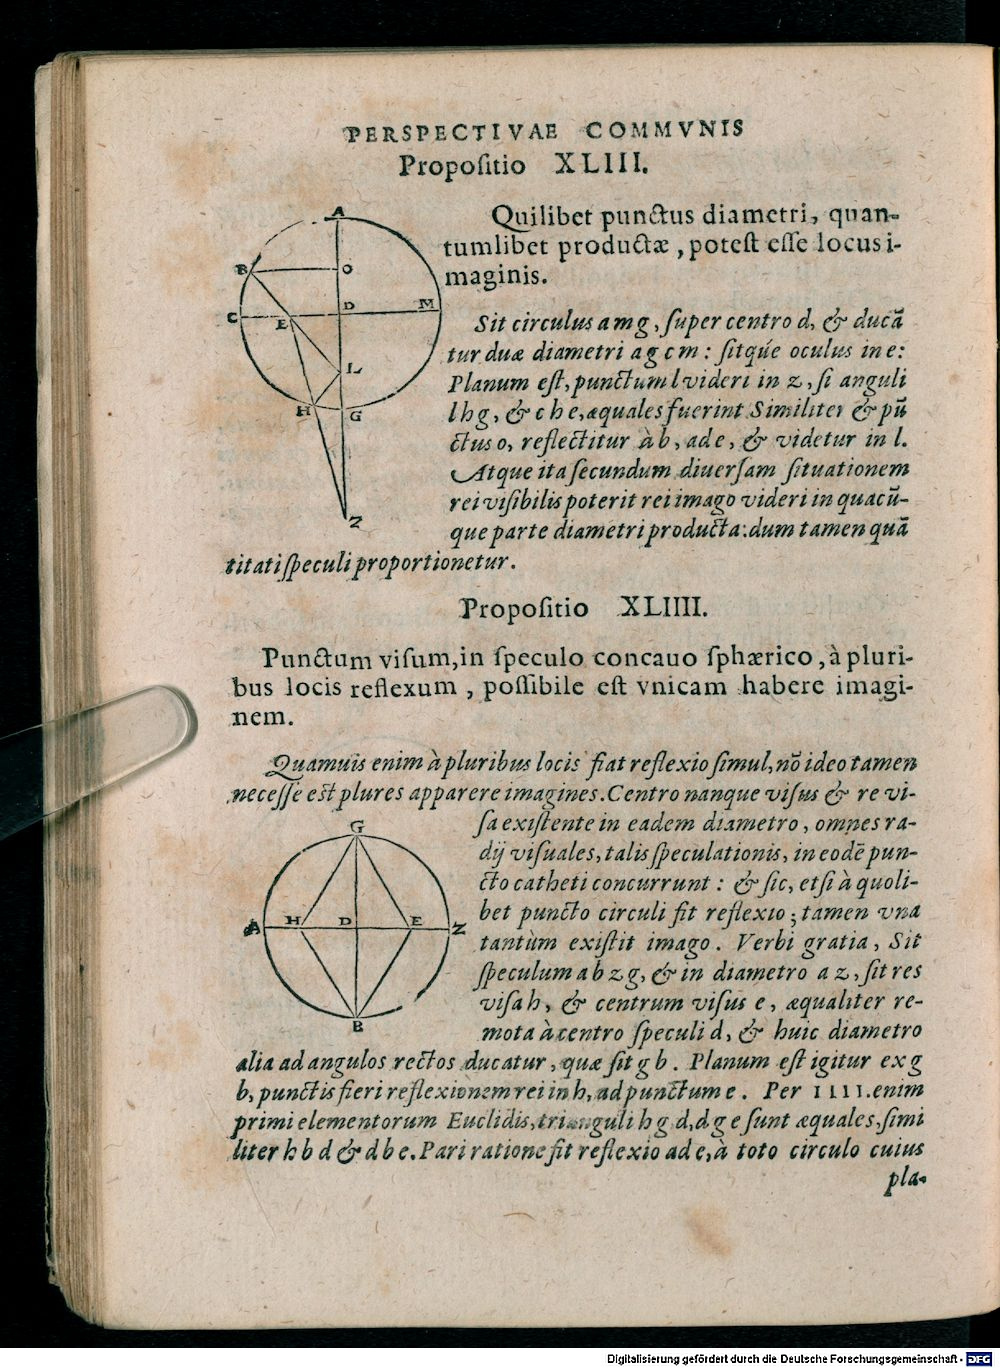 PERSPECTIVAE COMMVNIS
Propoſitio XLIII.
Quilibet punctus diametri, quan-
tumlibet productæ, poteſt eſſe locus i-
maginis.
Sit circulus a m g, ſuper centro d, & ducā
tur duæ diametri a g c m: ſitq́ue oculus in e:
Planum eſt, punctum l videri in z, ſi anguli
l h g, & c h e, æquales fuerint Similiter & pū
ctus o, reflectitur à b, ad e, & videtur in l.
Atque ita ſecundum diuerſam ſituationem
rei viſibilis poterit rei imago videri in quacū-
que parte diametri producta: dum tamen quā
titati ſpeculi proportionetur.
A
B
O
C
E
D
M
L
H
G
Z
Propoſitio XLIIII.
Punctum viſum, in ſpeculo concauo ſphærico, à pluri-
bus locis reflexum, poſſibile eſt vnicam habere imagi-
nem.
Quamuis enim à pluribus locis fiat reflexio ſimul, nō ideo tamen
neceſſe eſt plures apparere imagines. Centro nanque viſus & re vi-
ſa exiſtente in eadem diametro, omnes ra-
dij viſuales, talis ſpeculationis, in eodē pun-
cto catheti concurrunt: & ſic, etſi à quoli-
bet puncto circuli fit reflexio; tamen vna
tantùm exiſtit imago. Verbi gratia, Sit
ſpeculum a b z g, & in diametro a z, ſit res
viſa h, & centrum viſus e, æqualiter re-
mota à centro ſpeculi d, & huic diametro
alia ad angulos rectos ducatur, quæ ſit g b. Planum eſt igitur ex g
b, punctis fieri reflexionem rei in h, ad punctum e. Per IIII. enim
primi elementorum Euclidis, trianguli h g d, d g e ſunt æquales, ſimi
liter h b d & d b e. Pari ratione fit reflexio ad e, à toto circulo cuius
pla-
G
A
H
D
E
Z
B
Digitalisierung gefördert durch die Deutsche Forschungsgemeinschaft - DFG